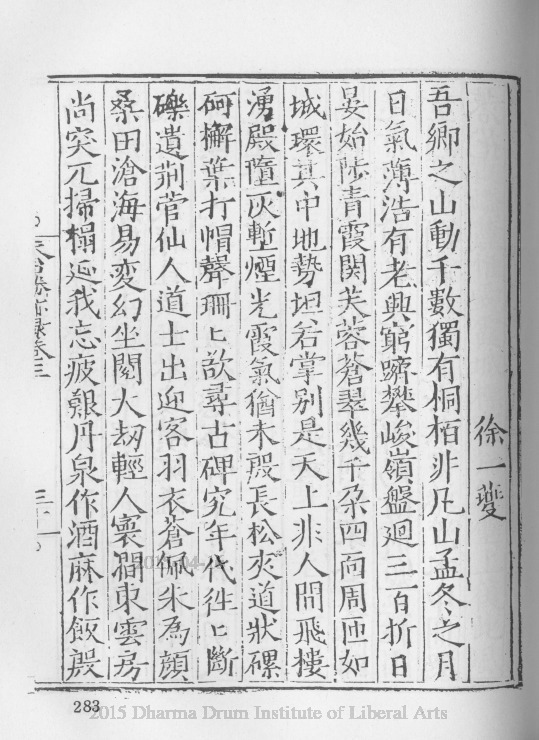 徐一夔
吾鄉之山動千數獨有桐栢非凡山孟冬之月
日氣薄浩有老興窮躋攀峻嶺盤迴三百折日
晏始陟青霞関芙蓉蒼翠幾千朶四面周匝如
城環其中地勢坦若掌别是天上非人間飛樓
湧殿墮灰塹煙光霞氣猶未殷長松夾道狀磥
砢檞葉打帽聲珊〻欲尋古碑究年代徃〻斷
礫遺荆菅仙人道士出迎客羽衣蒼佩氷為顔
桑田滄海易變幻坐閱大刼輕人寰開東雲房
尚突兀掃榻延我忘疲艱丹泉作酒麻作飯殷
天台勝蹟錄卷三
三十
283
2015 Dharma Drum Institute of Liberal Arts